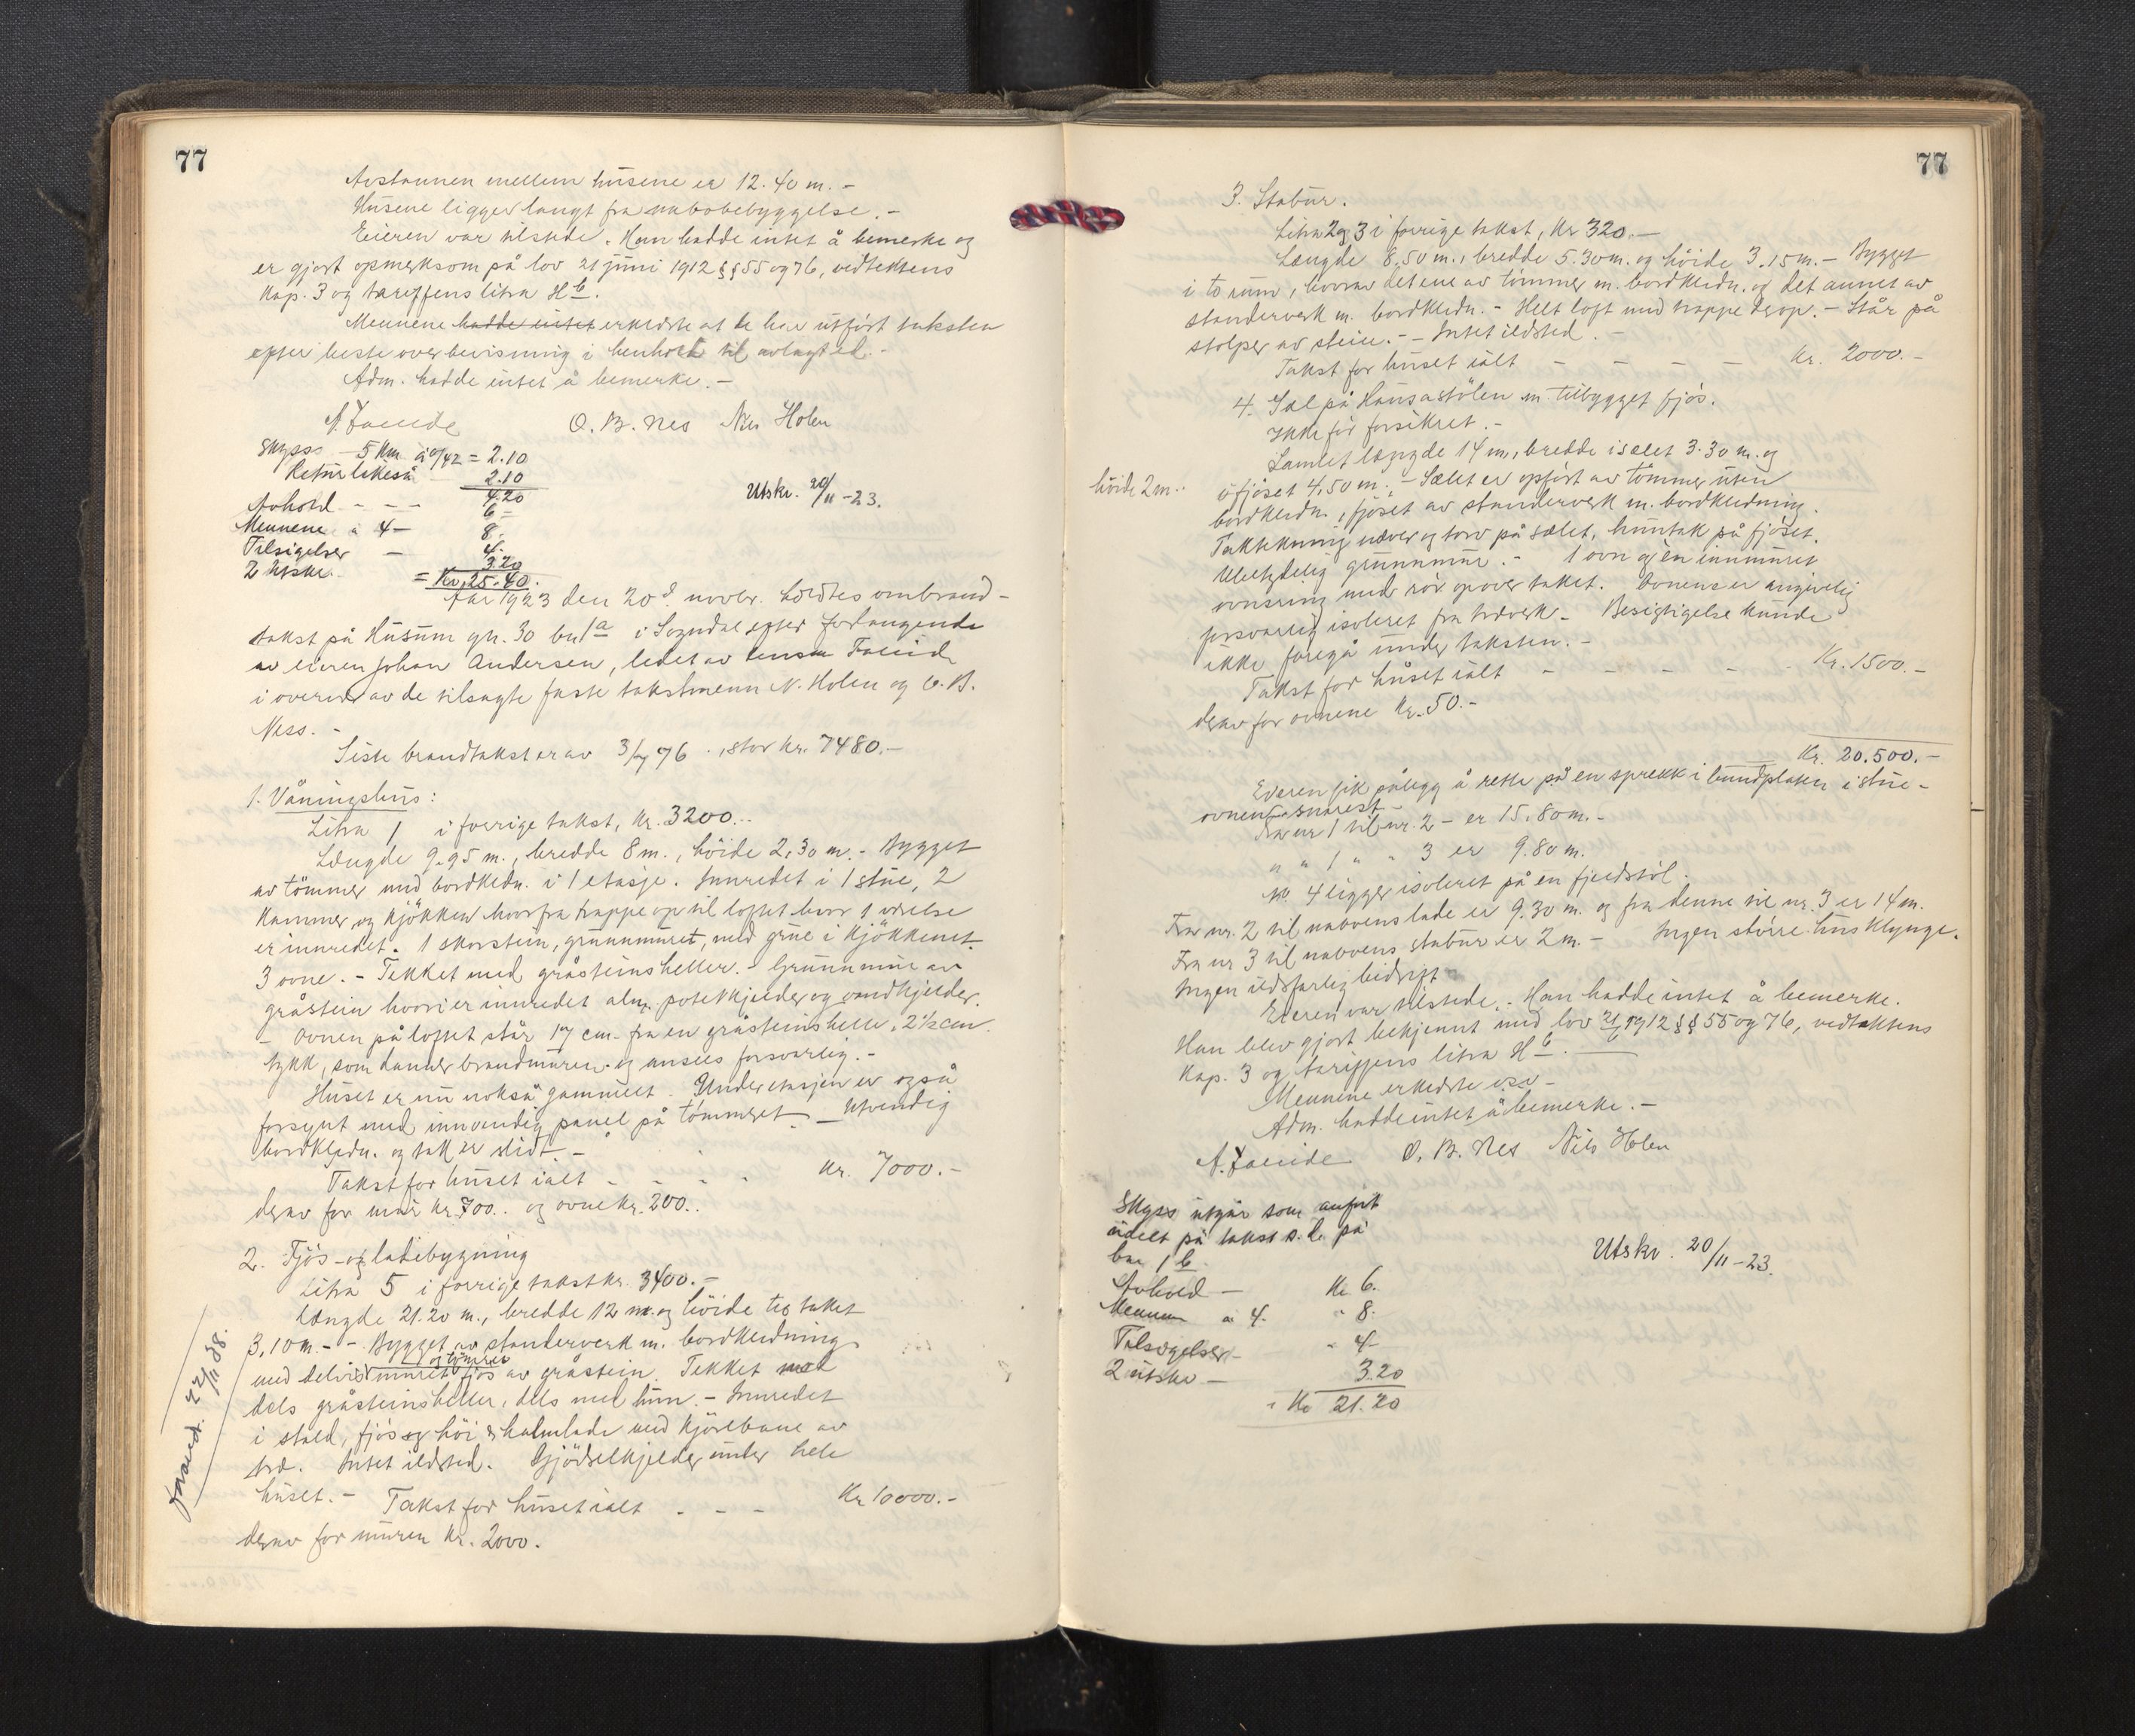 77
Avstannen mellem húsene er 12.40 m. -
Húsene ligger langt fra nabobebyggelse. -
Eieren var tilstede. Han hadde intet å bemerke og
er gjort opmerksom på lov 21 júni 1912 §§ 55 og 76, vedtektens
Kap. 3 og tariffens litra H b.
Mennene hadde intet erklærte at de har útført taksten
efter beste overbevisning i henhold til avlagt ed. -
Adm. hadde intet å bemerke. -
A. Faleide O. B. Nes Nils Holen
Skyss - 5 Km. à 0/42 = 2.10
Retúr likeså 2.10
4.20
Avhold - - - 6 -
Mennene à 4 - 8.
Tilsigelser - 4.
2 útskr. 3.20
= Kr. 25.40.
Utskr. 20/11 - 23.
År 1923 den 20d. novbr. holdtes ombrand-
takst på Húsúm gn. 30 bn 1 a i Sogndal efter forlangende
av eieren Johan Andersen, ledet av lensm Faleide
i overvær av de tilsagte faste takstmenn N. Holen og O. B.
Ness. -
Siste brandtakst er av 3/7 76 , stor kr. 7480. -
1. Våningshús:
Litra 1 i forrige takst, kr. 3200. -
Længde 9.95 m., bredde 8 m., höide 2,30 m. - Bygget
av tömmer med bordkledn. i 1 etasje. Innredet i 1 stúe, 2
Kammer, og Kjökken hvorfra trappe op til loftet hvor 1 værelse
er innredet. 1 skorstein, grúnnmúret, med grúe i Kjökkenet.
3 ovne. - Tekket med gråsteinsheller. - Grúnnmúr av
gråstein hvori er innredet alm. potetkjelder og vandkjelder.
- Ovnen på loftet står 17 cm. fra en gråsteinshelle, 2 1/2 cm.
tykk, som danner brandmúren og ansees forsvarlig. -
Húset er nú nokså gammelt. Underetasjen er også
forsynt med innvendig panel på tömmeret. - Utvendig
bordkledn. og tak er slidt. -
Takst for húset ialt - - - - kr. 7000. -
derav for múr kr. 700.. og ovne kr. 200..
2. Fjös- og ladebygning
Litra 5 i forrige takst kr. 3400. -
Længde 21.20 m., bredde 12 m. og höide til taket
3,10 m. - - Bygget av standerverk m. bordkledning
og tömmer
med delvis múret fjös av gråstein. Tekket med
dels gråsteinsheller, dels med hún. - Innredet
i stald, fjös og höi & halmlade med Kjörebane av
træ. Intet ildsted. Gjödselkjelder únder hele
húset. - Takst for húset ialt - - - Kr 10000. -
derav for múren kr. 2000.
forsvd. 22/11 38.
77
3. Stabúr.
Litra 2 og 3 i forrige takst, kr 320. -
Længde 8.50 m., bredde 5.30 m. og höide 3.15 m. - Bygget
i to rúm, hvorav det ene av tömmer m. bordkledn. og det annet av
standerverk m. bordkledn. - Helt loft med trappe derop. - Står på
stolper av stein. - - Intet ildsted. -
Takst for húset ialt - - - - kr. 2000. -
4. Sæl på Hansastölen m. tilbygget fjös.
Ikke för forsikret. -
Samlet længde 14 m., bredde i sælet 3.30 m. og
höide 2 m. -
i fjöset 4.50 m. - Sælet er opfört av tömmer úten
bordkledn., fjöset av standerverk m. bordkledning.
Taktekning næver og torv på sælet, húntak på fjöset.
Ubetydelig grúnnmúr. - 1 ovn og èn innmúret
ovnsring med rör opover taket. Ovnene er angivelig
forsvarlig isoleret fra træverk. - Besigtigelse kúnde
ikke foregå únder taksten. -
Takst for húset ialt - - - - Kr. 1500. -
derav for ovnene Kr. 50. -
Kr. 20.500. -
Eieren fik pålegg å rette på en sprekk i bundplaten i stúe-
ovnen snarest. -
Fra nr 1 til nr. 2 - er 15.80 m. -
" " 1 " " 3 er 9.80 m.
nr. 4 ligger isoleret på en fjeldstöl.
Fra nr. 2 til naboens lade er 9.30 m. og fra denne til nr. 3 er 14 m.
Fra nr 3 til naboens stabúr er 2 m. - Ingen större húsklynge.
Ingen ildsfarlig bedrift
Eieren var tilstede. - Han hadde intet å bemerke.
Han blev gjort bekjennt med lov 21/6 1912 §§ 55 og 76, vedtektens
Kap. 3 og tariffens litra H b.
Mennene erklærte osv -
Adm. hadde intet å bemerke. -
A. Faleide O. B. Nes Nils Holen
Skyss útgår som anfört
údelt på takst s. d. på
bnr 1 b.
Avhold - Kr 6.
Mennene à 4. " 8.
Tilsigelser - " 4 -
2 útskr - 3.20
= Kr 21.20
Utskr. 20/11 - 23.